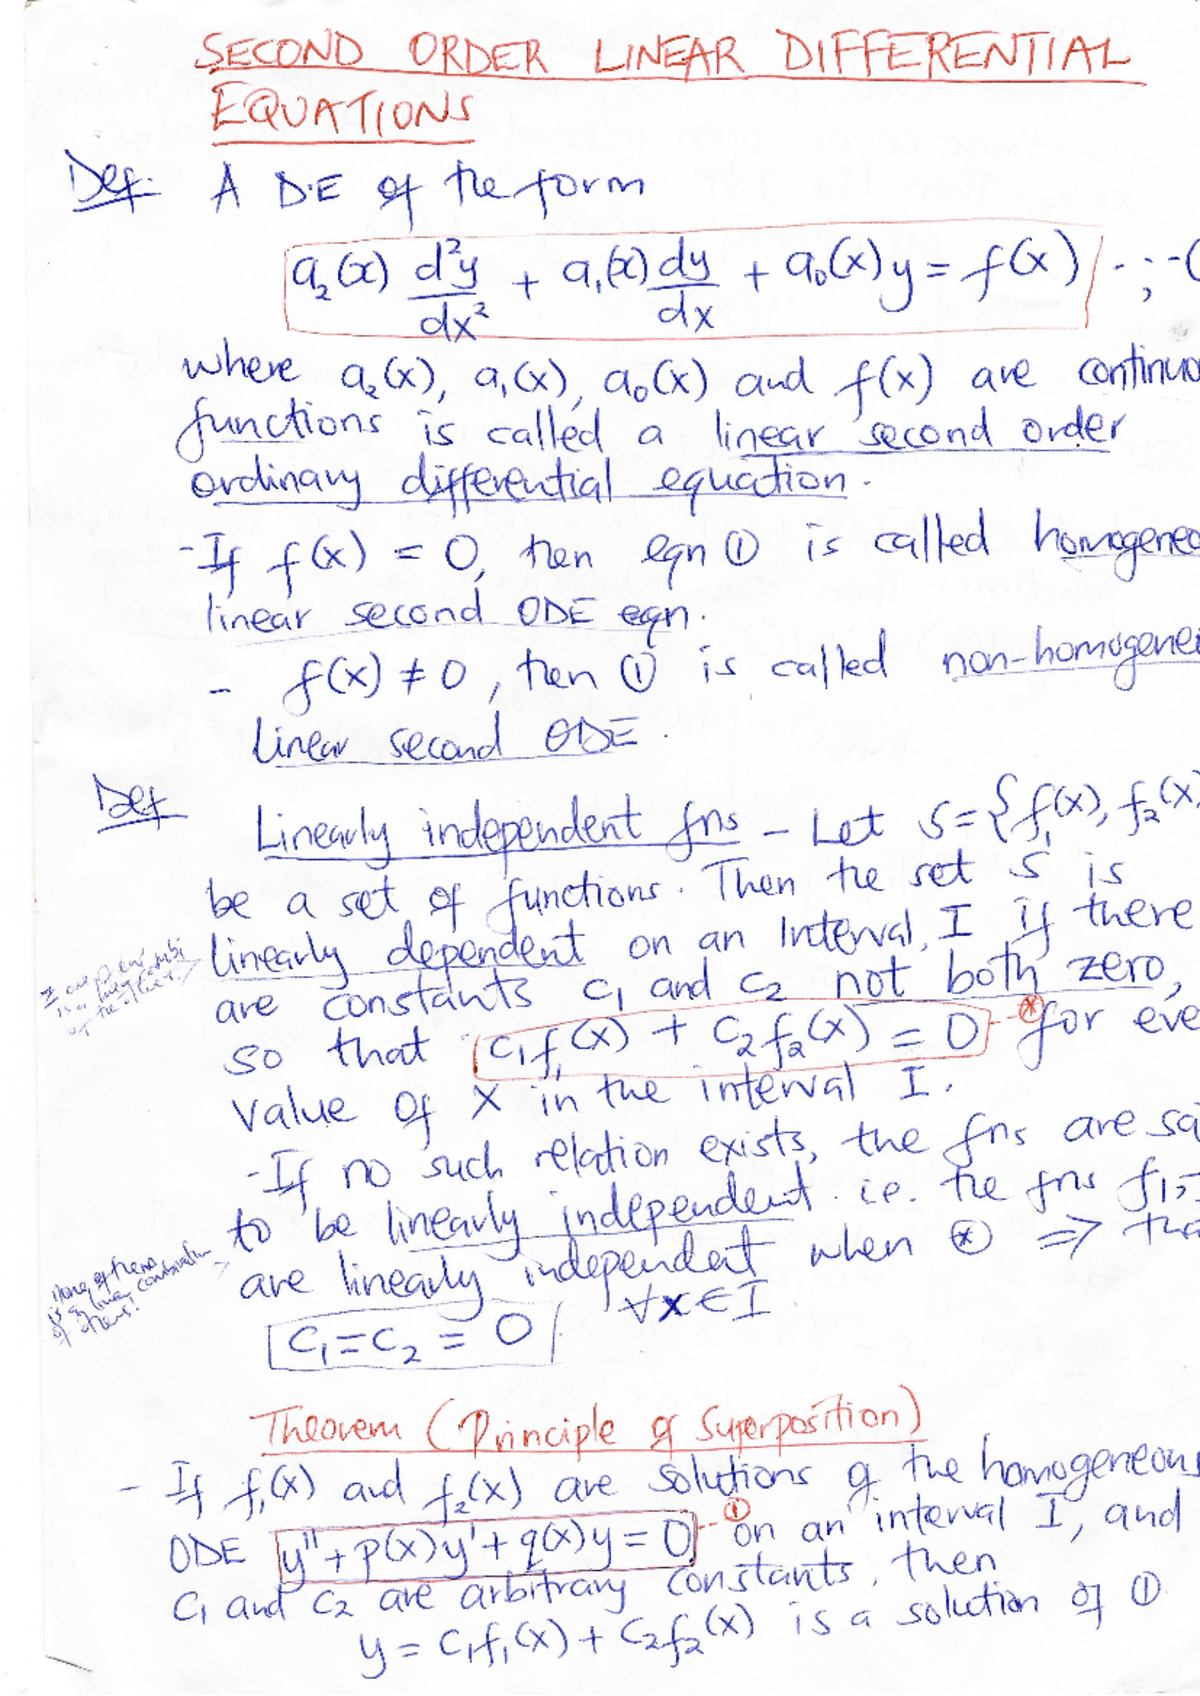 SECOND ORDER LINEAR DIFFERENTIAL
EQUATIONS
Def. A D.E of the form
a₂(x) d²y/dx² + a₁(x) dy/dx + a₀(x)y = f(x)
where a₂(x), a₁(x), a₀(x) and f(x) are continuo
functions is called a linear second order
ordinary differential equation.
- If f(x) = 0, then eqn ① is called homogeneo
linear second ODE eqn.
- f(x) ≠ 0, then ① is called non-homogene
linear second ODE.
Def
Linearly independent fns - Let S = {f₁(x), f₂(x)
be a set of functions. Then the set S is
linearly dependent on an Interval, I if there
are constants c₁ and c₂ not both zero,
so that c₁f₁(x) + c₂f₂(x) = 0 --⊛ for eve
value of x in the interval I.
- If no such relation exists, the fns are sa
to be linearly independent. i.e. the fns f₁,
are linearly independent when ⊛ ⇒ tha
of the others.
none of them
is a linear combination
of others!
C₁ = C₂ = 0 ∀x∈I
Theorem (Principle of Superposition)
- If f₁(x) and f₂(x) are solutions of the homogeneous
ODE y'' + p(x)y' + q(x)y = 0 --① on an interval I, and
c₁ and c₂ are arbitrary constants, then
y = c₁f₁(x) + c₂f₂(x) is a solution of ①